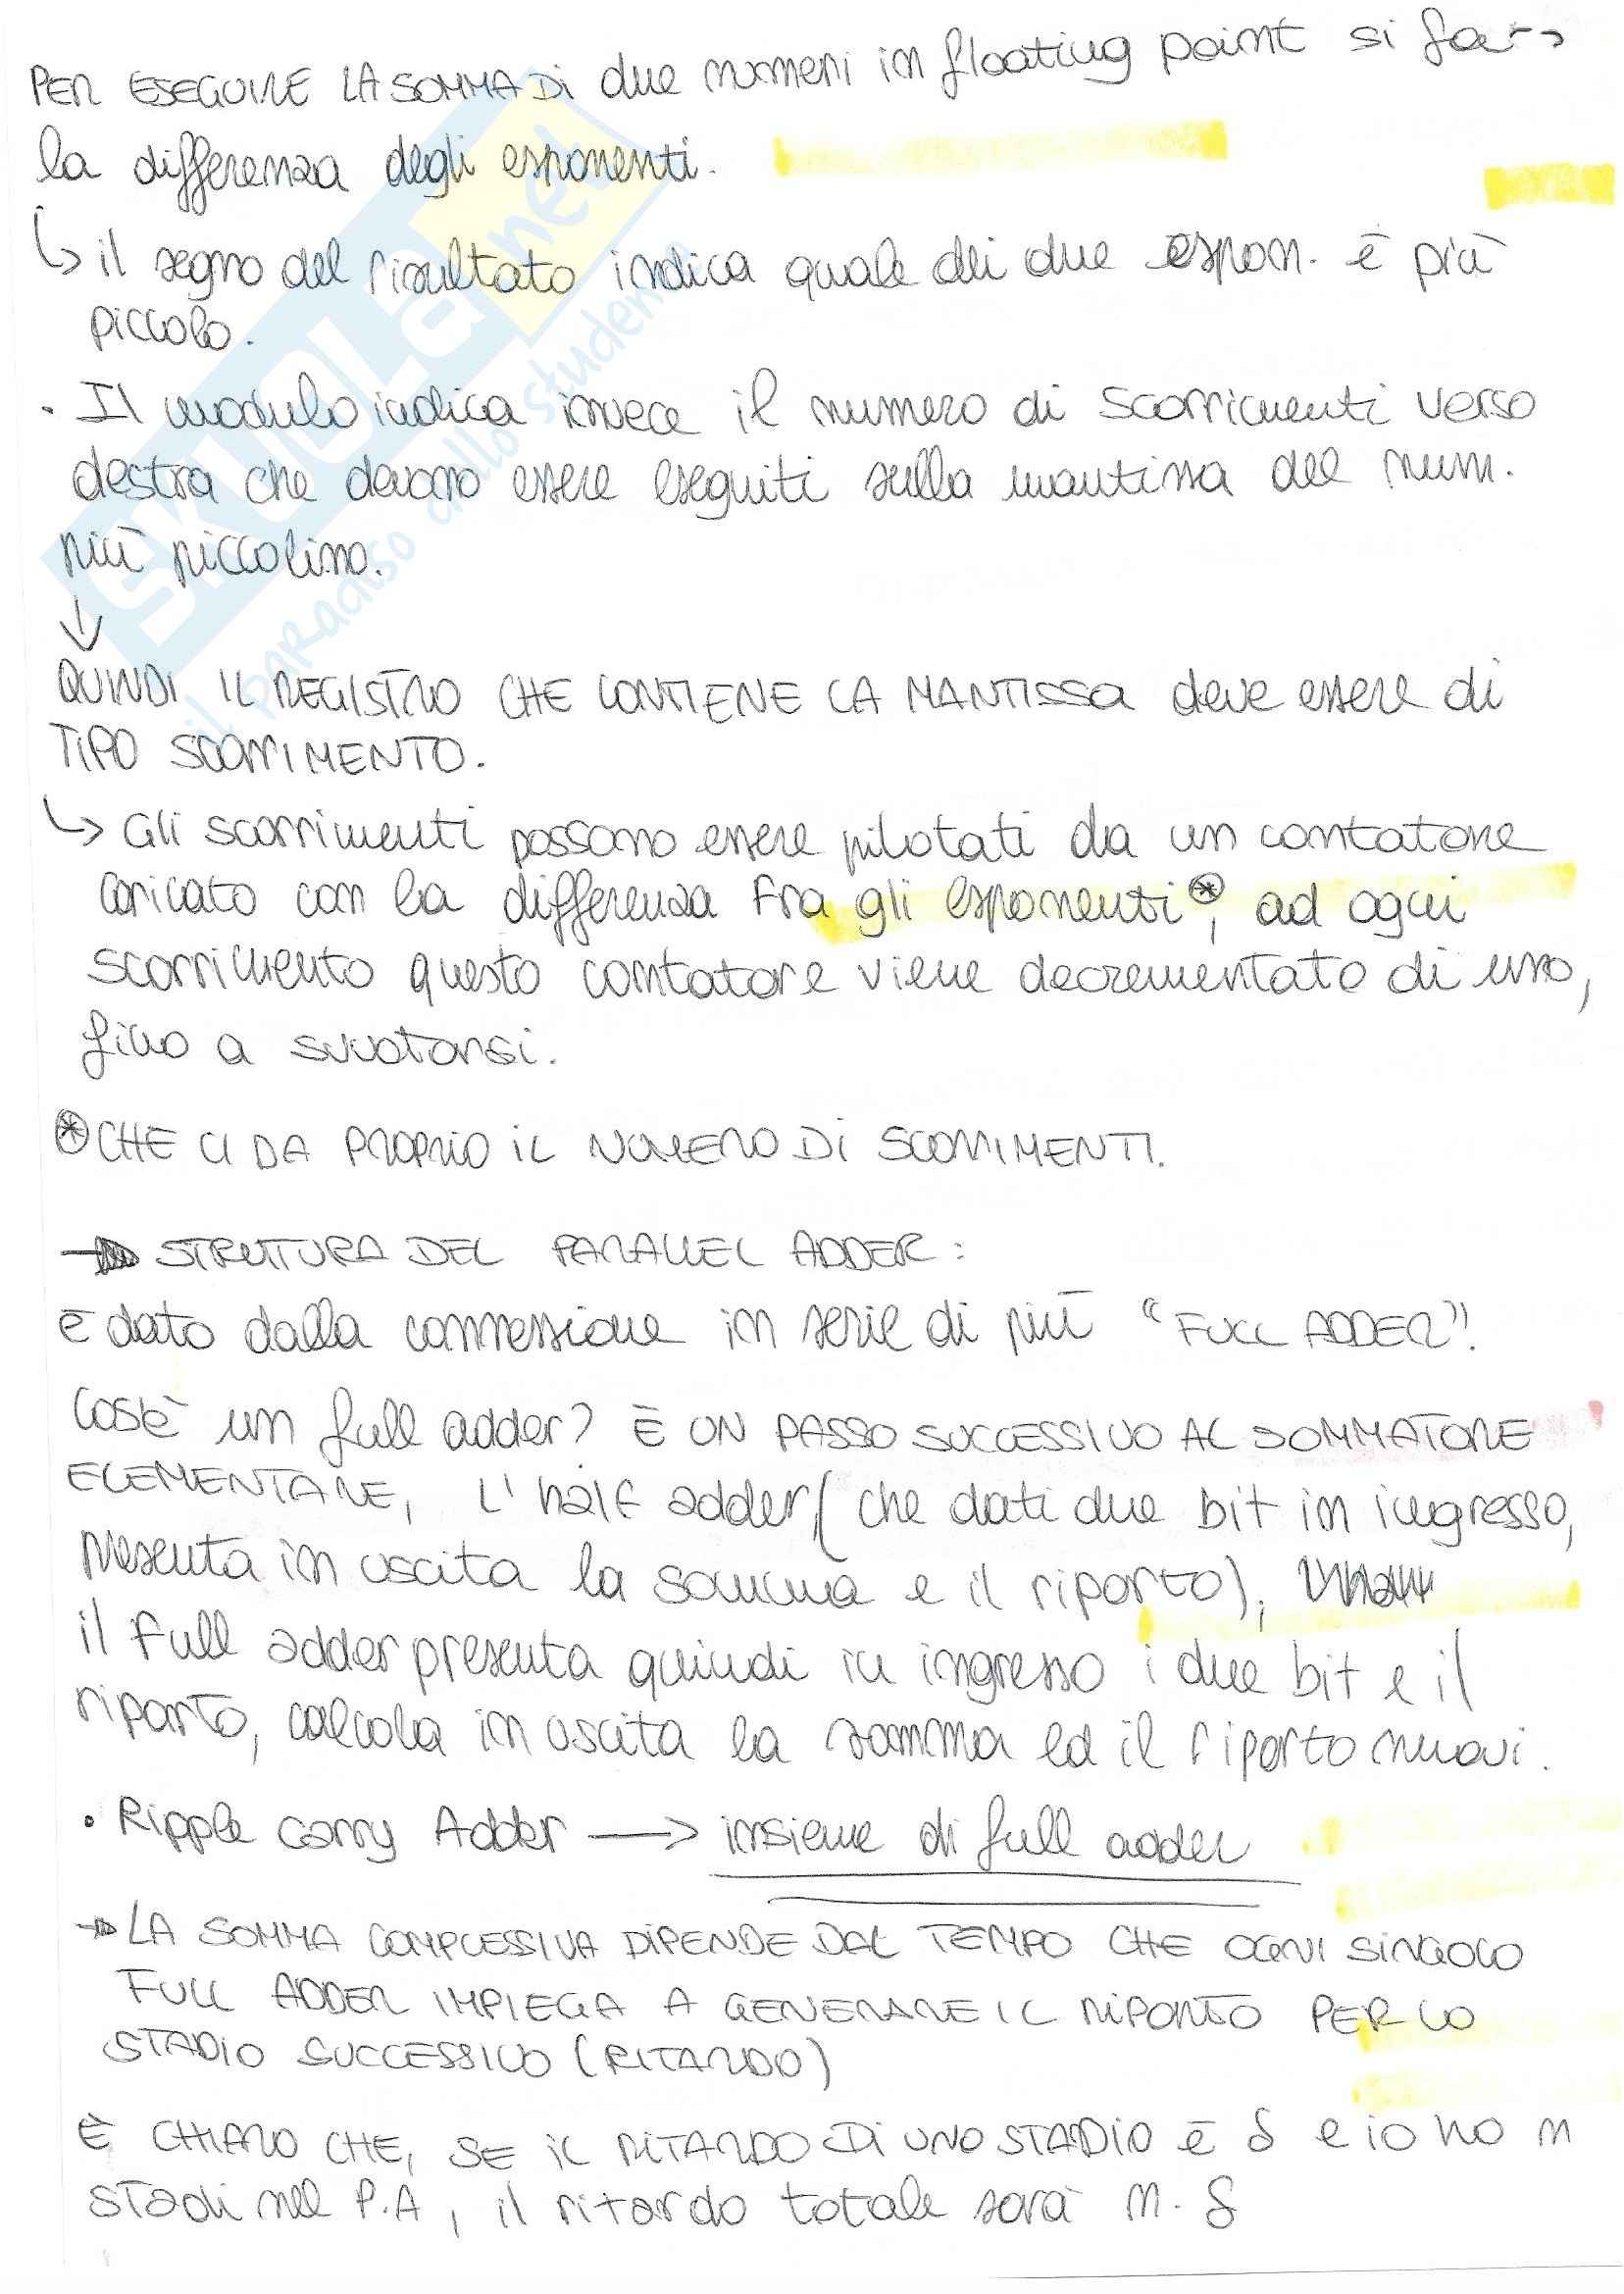 PER ESEGUIRE LA SOMMA Di due numeri in floating point si fa →
la differenza degli esponenti.
↳ il segno del risultato indica quale dei due espon. è più
piccolo.
· Il modulo indica invece il numero di scorrimenti verso
destra che devono essere eseguiti sulla mantissa del num.
più piccolino.
↓
QUINDI IL REGISTRO CHE CONTIENE LA MANTISSA deve essere di
TIPO SCORRIMENTO.
↳ Gli scorrimenti possono essere pilotati da un contatore
caricato con la differenza fra gli esponenti⊛, ad ogni
scorrimento questo contatore viene decrementato di uno,
fino a svuotarsi.
⊛ CHE CI DA PROPRIO IL NUMERO DI SCORRIMENTI.
→ STRUTTURA DEL PARALLEL ADDER:
è dato dalla connessione in serie di più "FULL ADDER".
Cos'è un full adder? È UN PASSO SUCCESSIVO AL SOMMATORE
ELEMENTARE, L'half adder (che dati due bit in ingresso,
presenta in uscita la somma e il riporto),
il full adder presenta quindi in ingresso i due bit e il
riporto, calcola in uscita la somma ed il riporto nuovi.
· Ripple carry Adder → insieme di full adder
→ LA SOMMA COMPLESSIVA DIPENDE DAL TEMPO CHE OGNI SINGOLO
FULL ADDER IMPIEGA A GENERARE IL RIPORTO PER LO
STADIO SUCCESSIVO (RITARDO)
È CHIARO CHE, SE IL RITARDO DI UNO STADIO è δ e io ho n
stadi nel P.A, il ritardo totale sarà n · δ
SKUOLA.net
il paradiso dello studente